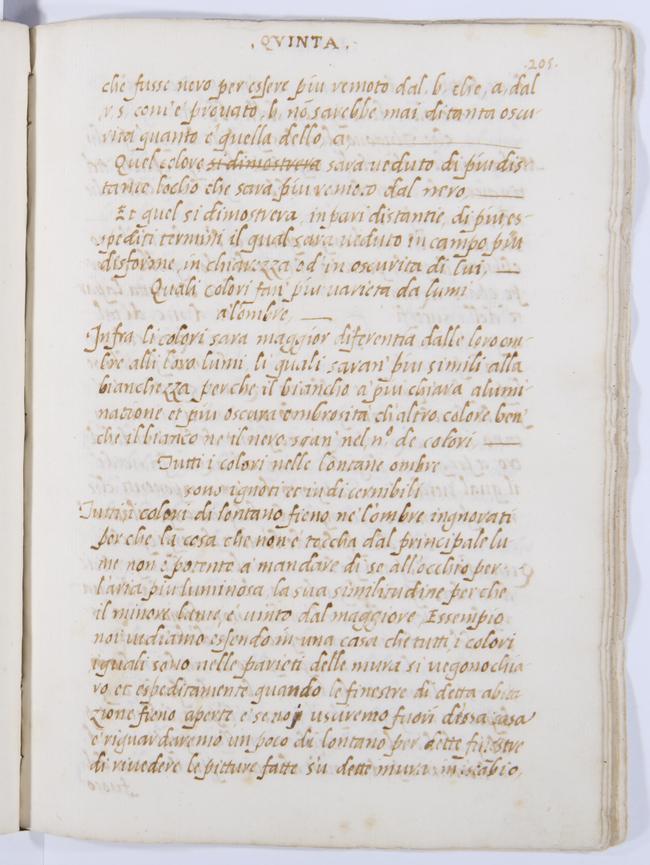 . QVINTA .
.205.
che fusse nero per essere piu remoto dal. b. che, a, dal
r. s. com'e prouato, b, nõ sarebbe mai di tanta oscu-
rita quanto e quella dello, a
Quel colore si dimostrera sara ueduto di piu dis
tante lochio che sara piu remoto dal nero
Et quel si dimostrera, in pari distantie, di piu es-
pediti termini il qual sara ueduto in campo piu
disforme, in chiarezza od in oscurita di lui,
Quali colori fan' piu uarieta da lumi
a lombre,
Infra, li colori sara maggior diferentia dalle loro om-
bre alli loro lumi, li quali saran' piu simili alla
bianchezza, perche il biancho a piu chiara alumi
natione et piu oscura ombrosita ch'altro colore, ben
che il bianco ne il nero, sian' nel n.º de colori,
Tutti i colori nelle lontane ombre
sono ignoti et indicernibili
Tutti i colori di lontano fieno ne l'ombre ingnorati
perche, la cosa che non'e toccha dal principale lu
me non é potente a mandare di se all'occhio per
l'aria piu luminosa, la sua similitudine perche
il minore lume, e uinto dal maggiore Essempio
noi uediamo essendo in una casa che tutti, i colori
iquali sono nelle parieti delle mura si uegono chia-
ro, et espeditamente quando le finestre di detta abita
zione fieno aperte, e se noi usciremo fuori d'essa casa
e riguardaremo un poco di lontano per dette finestre
di riuedere le pitture fatte su dette mura in scabio,
fuoco